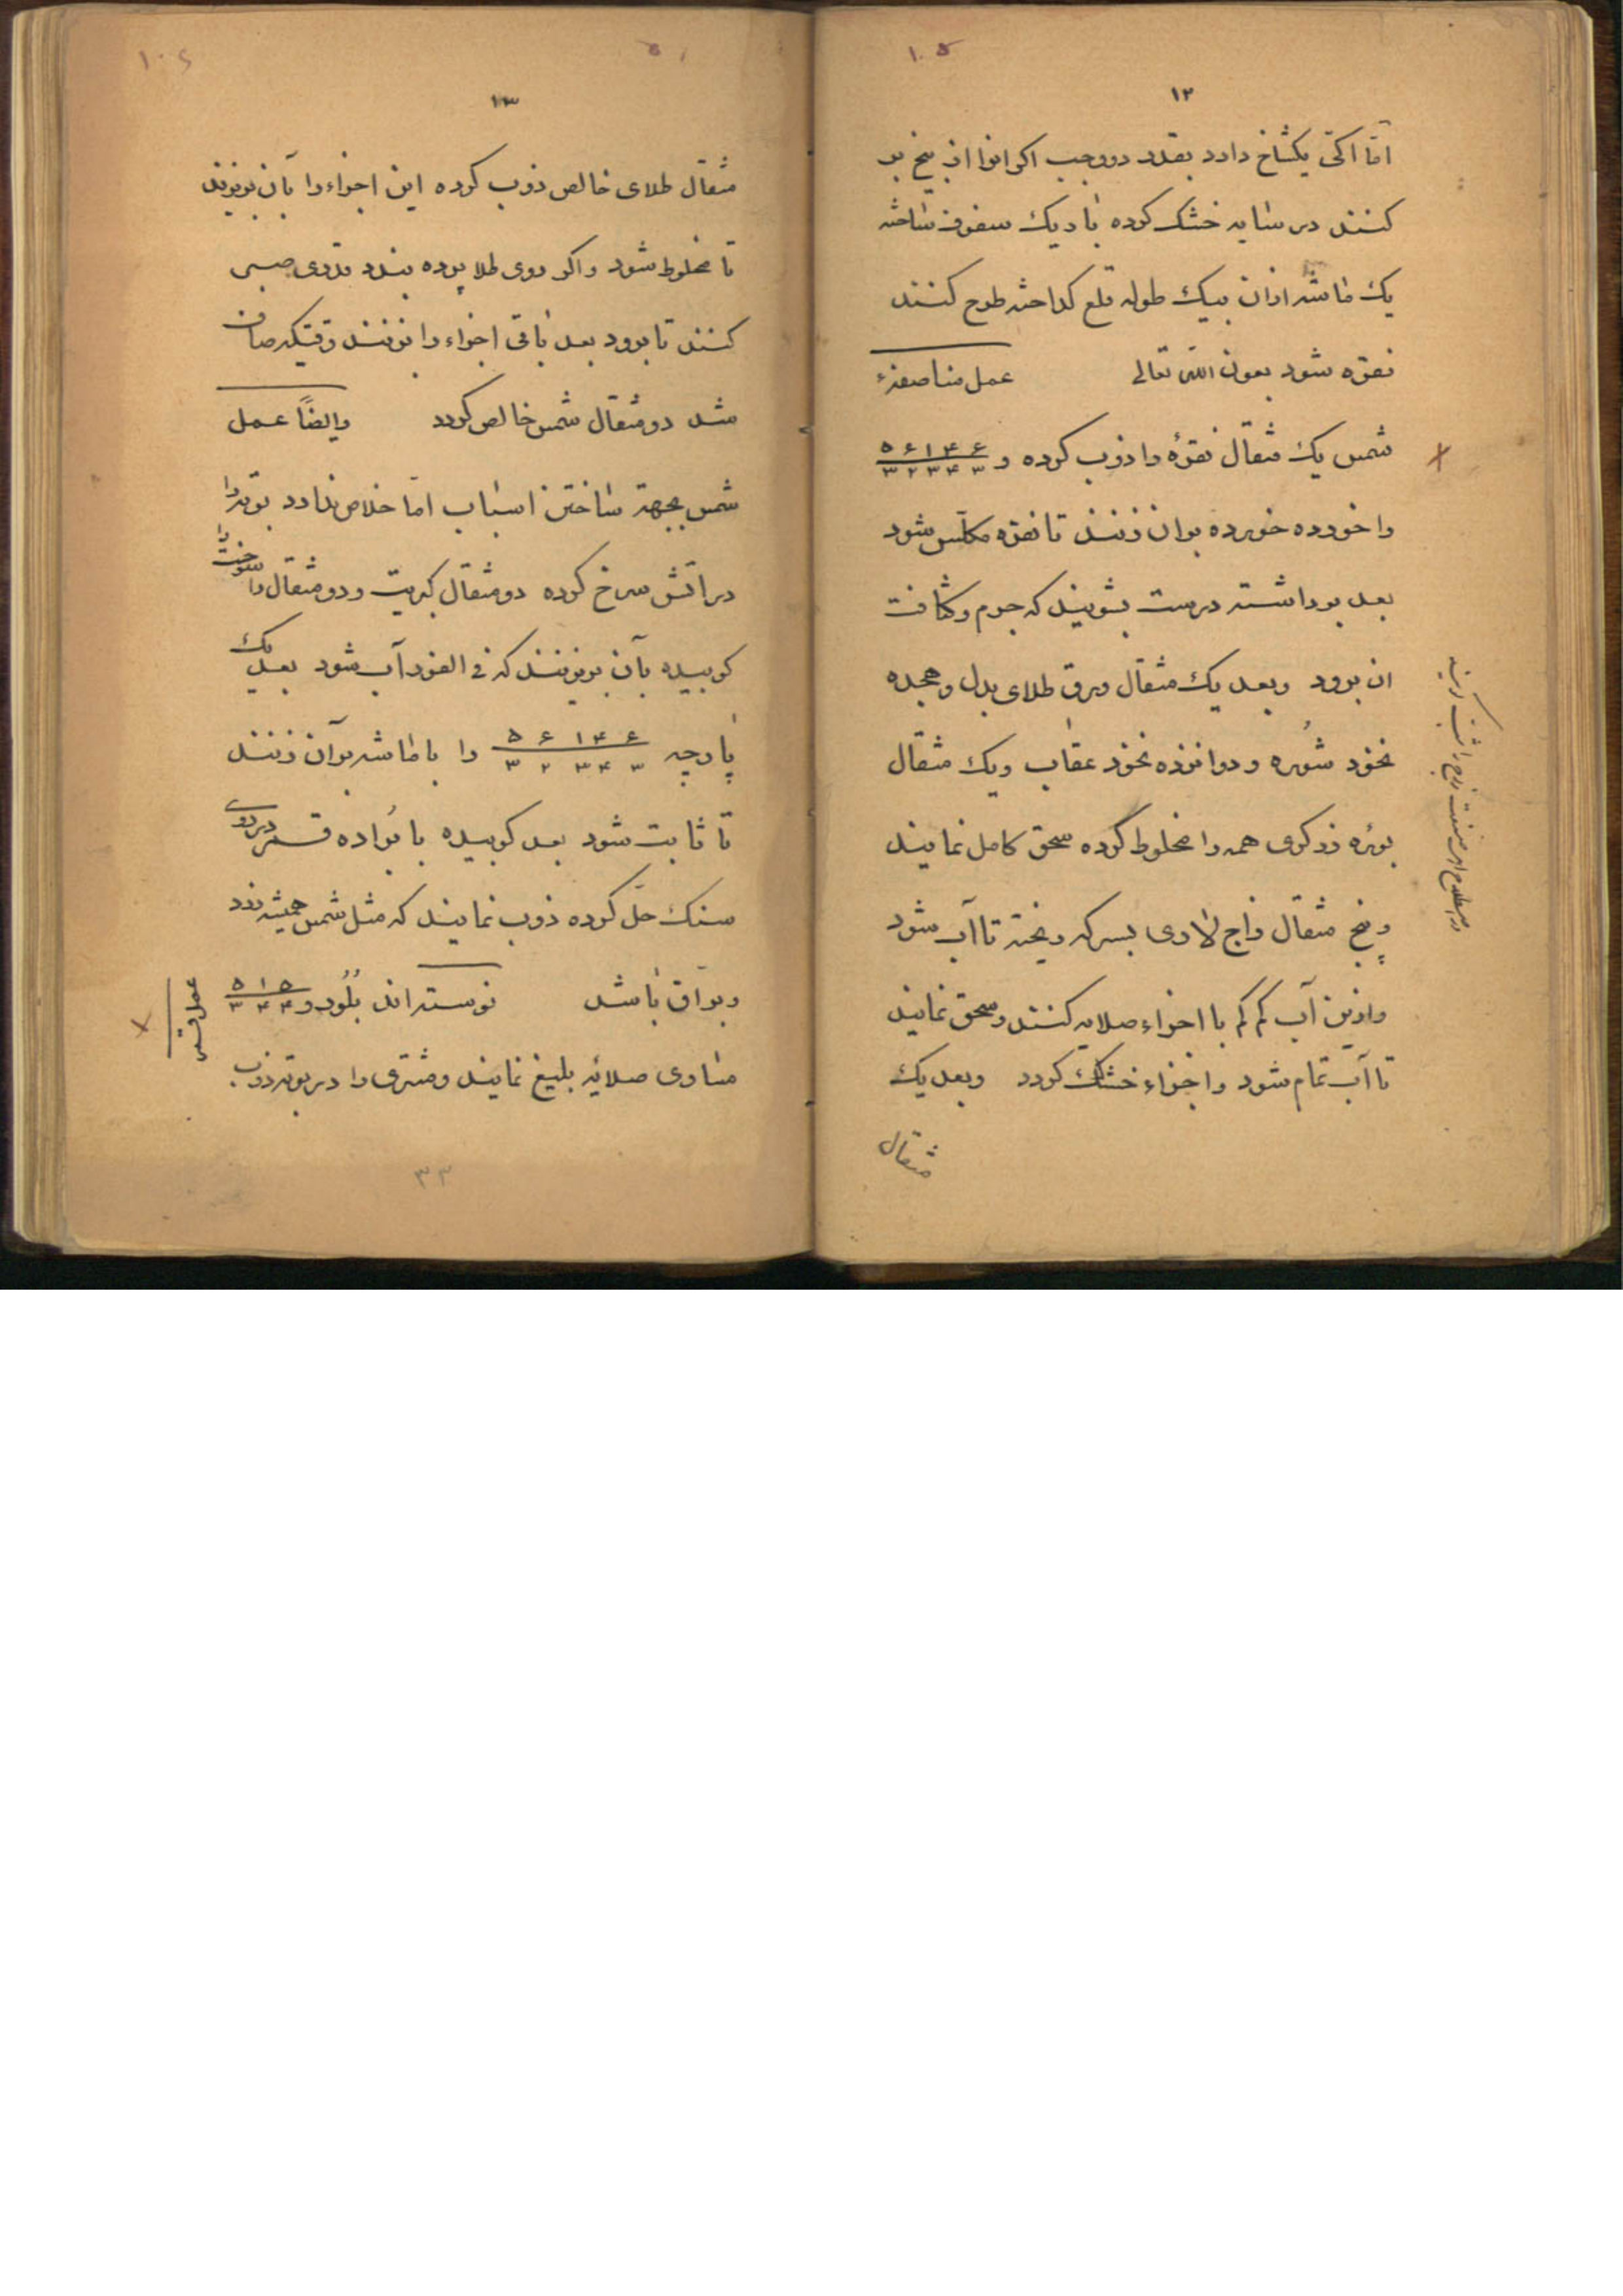 ۱۰۵
۱۲
امّا اکثر یکشاخ دارد بقدر دو وجب اکر انرا از بیخ بر
کنند در سایه خشک کرده باریک سفوف ساخته
یک ماشه ازان بیک طوله قلع کداخته طرح کنند
نقره شود بعون الله تعالی عمل مناصفهٔ
شمس یک مثقال نقرهٔ را ذوب کرده و ۶ ۴ ۱ ۶ ۵
۳ ۴ ۳ ۲ ۳
را خورده خورده بران زنند تا نقره مکلّس شود
بعد برداشته درست بشویند که جرم و کثافت
ان برود وبعد یک مثقال ورق طلای بدل و هجده
نخود شوره و دوانزده نخود عقاب ویک مثقال
بوره زرکری همه را مخلوط کرده سحق کامل نمایند
و پنج مثقال زاج لاوری بسرکه ریخته تا آب شود
وازین آب کم کم با اجزاء صلایه کنند و سحق نمایند
تا آب تمام شود و اجزاء خشک کردد وبعد یک
مثقال
۱۰۶
۱۳
مثقال طلای خالص ذوب کرده این اجزاء را بآن بریزند
تا مخلوط شود واکر روی طلا پرده بندد قدری صبر
کنند تا برود بعد باقی اجزاء را بزنند وقتیکه صاف
شد دو مثقال شمس خالص کردد وایضاً عمل
شمس بجهة ساختن اسباب امّا خلاص ندارد بوته را
در آتش سرخ کرده دو مثقال کبریت و دو مثقال را
سوخت
کوبیده بآن بریزند که فی الفور آب شود بعد یک
پارچه ۶ ۴ ۱ ۶ ۵ را با ماشه برآن زنند
۳ ۴ ۳ ۲ ۳
تا ثابت شود بعد کوبیده با براده قمر در روی
سنک حلّ کرده ذوب نمایند که مثل شمس همیشه زرد
وبراق باشد نوسته اند بلور و ۵ ۱ ۵
۴ ۴ ۳
عمل قمر
مساوی صلایه بلیغ نمایند ومشتری را در بوته ذوب
۳۳